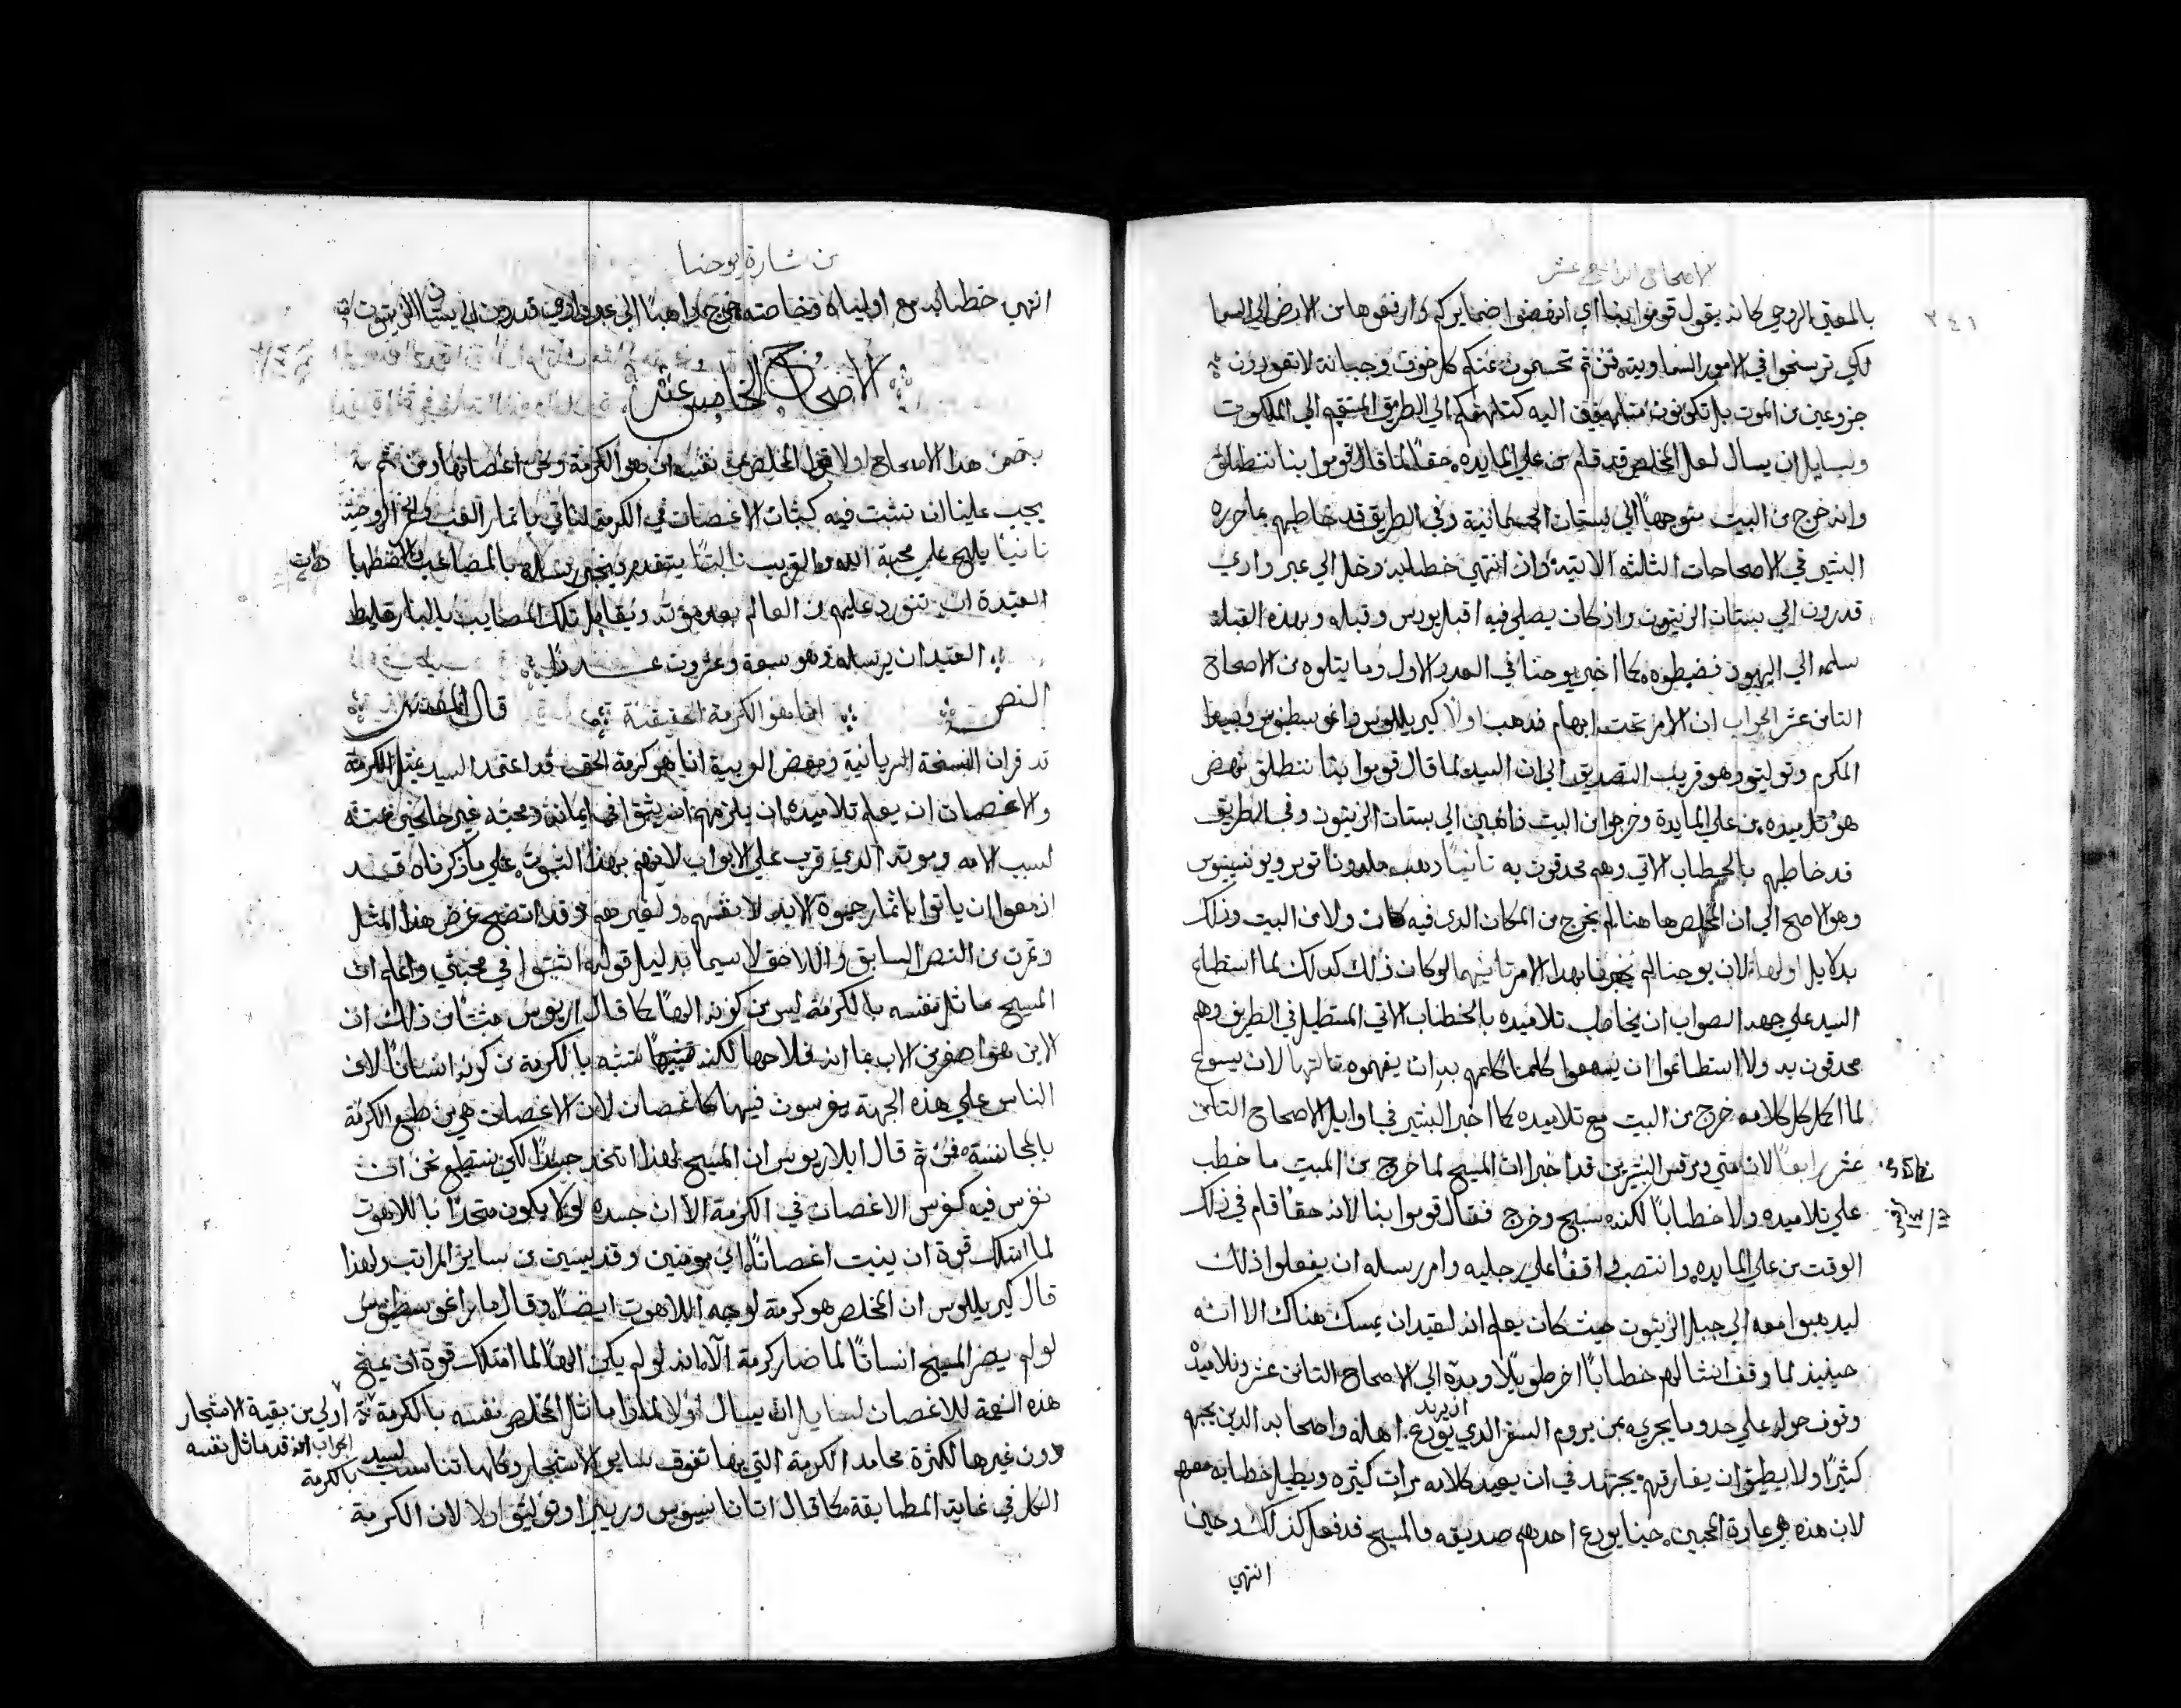 الاصحاح الرابع عشر
٢٤١
بالمعني الروحي كانه يقول قوموا بنا اي انهضوا ضمايركم وارفعوها من الارض الي السما
لكي ترسخوا في الامور السماويه فمن ثم تحسمون عنكم كل خوف وجبانة لا تعودون
جزوعين من الموت بل تكونون متاهبين اليه كتاهبكم الي الطريق المستقيم الي الملكوت
ولسايل ان يسال لعل المخلص قد قام من علي المايده حقاً لما قال قوموا بنا ننطلق
وانه خرج من البيت متوجهاً الي بستان الجسمانية وفي الطريق قد خاطبهم بما حرره
البشير في الاصحاحات الثالثه الاتيه واذ انتهي خطابه دخل الي عبر وادي
قدرون الي بستان الزيتون واذ كان يصلي فيه اقبل يودس وقبله وبهذه القبله
سلمه الي اليهود فضبطوه كما اخبر يوحنا في العدد الاول وما يتلوه من الاصحاح
الثامن عشر الجواب ان الامر تحت ابهام فذهب اولاً كيريللوس واغوسطينوس وبيدا
المكرم وتوليتو وهو قريب التصديق الي ان السيد لما قال قوموا بنا ننطلق نهض
هو وتلاميده من علي المايدة وخرجوا من البيت ذاهبين الي بستان الزيتون وفي الطريق
قد خاطبهم بالخطاب الاتي وهم محدقون به ثانياً ذهب ملدوناتوس ويونسينيوس
وهو الاصح الي ان المخلص ها هنا لم يخرج من المكان الدي فيه كان ولا من البيت وذلك
بدلايل اولها لان يوحنا لم يخبرنا بهدا الامر ثانيهما لو كان ذلك كدلك لما استطاع
السيد علي جهد الصواب ان يخاطب تلاميده بالخطاب الاتي المستطيل في الطريق وهم
محدقون به ولا استطاعوا ان يسمعوا كلهم كلامه بدات يفهموه ثالثها لان يسوع
لما اكمل كل كلامه خرج من البيت مع تلاميده كما اخبر البشير في اوايل الاصحاح الثامن
عشر رابعاً لان متي ومرقس البشيرين قد اخبرا ان المسيح لما خرج من البيت ما خطب
علي تلاميده ولا خطاباً لكنه سبح وخرج فقال قوموا بنا لانه حقاً قام في ذلك
الوقت من علي المايده وانتصب واقفاً علي رجليه وامر رسله ان يفعلوا ذلك
ليدهبوا معه الي جبل الزيتون حيث كان يعلم انه لعتيد ان يمسك هناك الا انه
حينيذ لما وقف انشا لهم خطاباً اخر طويلاً ومده الي الاصحاح الثامن عشر وتلاميذه
وقوف حوله علي حدو ما يجري بمن يروم السفر الدي يودع اهله واصحابه الدين يحبهم
ان يريد
كثيراً ولا يطيق ان يفارقهم يجتهد في ان يعيد كلامه مرات كثيره ويطيل خطابه معهم
لان هذه هي عادة المحبين حينما يودع احدهم صديقه فالمسيح قد فعل كذلك وحين
انتهي
من بشارة يوحنا
انتهي خطابه مع اوليايه وخاصته خرج ذاهباً الي عبر وادي قدرون الي بستان الزيتون
الاصحاح الخامس عشر
يتضمن هدا الاصحاح اولا قول المخلص عن نفسه انه هو الكرمة ونحن اغصانها ومن ثم
يجب علينا ان نثبت فيه كثبات الاغصان في الكرمة لناتي باثمار العنب والخمر الروحية
ثانياً يلهج علي محبة الله والقريب ثالثاً يتقدم فيخبر رسله بالمصاعب والاضطهادات
العتيدة ان تتورد عليهم من العالم بعد موته ويقابل تلك المصايب بالبارقليط
العتيد ان يرسله وهو سبعة وعشرون عدداً
النص انا هو الكرمة الحقيقية قال المفسر
قد قران النسخة السريانية وبعض العربية انا هو كرمة الحق قد اعتمد السيد بمثل الكرمة
والاغصان ان يعلم تلاميده ان يلزمهم ان يثبتوا في ايمانه ومحبته غير جانحين عنه
لسبب الامه وموته الذي قرب علي الابواب لانهم بهذا الثبوت علي ما ذكرناه قد
ازمعوا ان ياتوا باثمار حيوة الابد لانفسهم ولغيرهم وقد اتضح غرض هذا المثل
وثمرته من النص السابق واللاحق لا سيما بدليل قوله اثبتوا في محبتي واعلم ان
المسيح ماثل نفسه بالكرمة ليس من كونه الهاً كما قال اريوس مبثان ذلك ان
الابن هو اصغر من الاب بما انه فلاحها لكنه تشبه بالكرمة من كونه انساناً لان
الناس علي هذه الجهة يغرسون فيها كاغصان لان الاغصان هي من طبع الكرمة
بالمجانسة فمن ثم قال ايلاريوس ان المسيح لهذا اتخد جسداً لكي نستطيع نحن ان
نغرس فيه كغرس الاغصان في الكرمة الا ان جسده لولا يكون متحداً باللاهوت
لما امتلك قوة ان ينبت اغصاناً اي مومنين وقديسين من ساير المراتب ولهذا
قال كيريللوس ان المخلص هو كرمة لوجه اللاهوت ايضاً وقال مار اغوسطينوس
لو لم يصر المسيح انساناً لما صار كرمة الا انه لو لم يكن الهاً لما امتلك قوة ان يمنح
هذه النعمة للاغصان لسايل ان يسال اولا لماذا ماثل المخلص نفسه بالكرمة اولي من بقية الاشجار
دون غيرها لكثرة محامد الكرمة التي بها تفوق ساير الاشجار وكلها تناسب السيد
الجواب انه قد ماثل نفسه
بالكرمة
الكل في غاية المطابقة كما قال اتاناسيوس وريبيرا وتوليتو اولا لان الكرمة